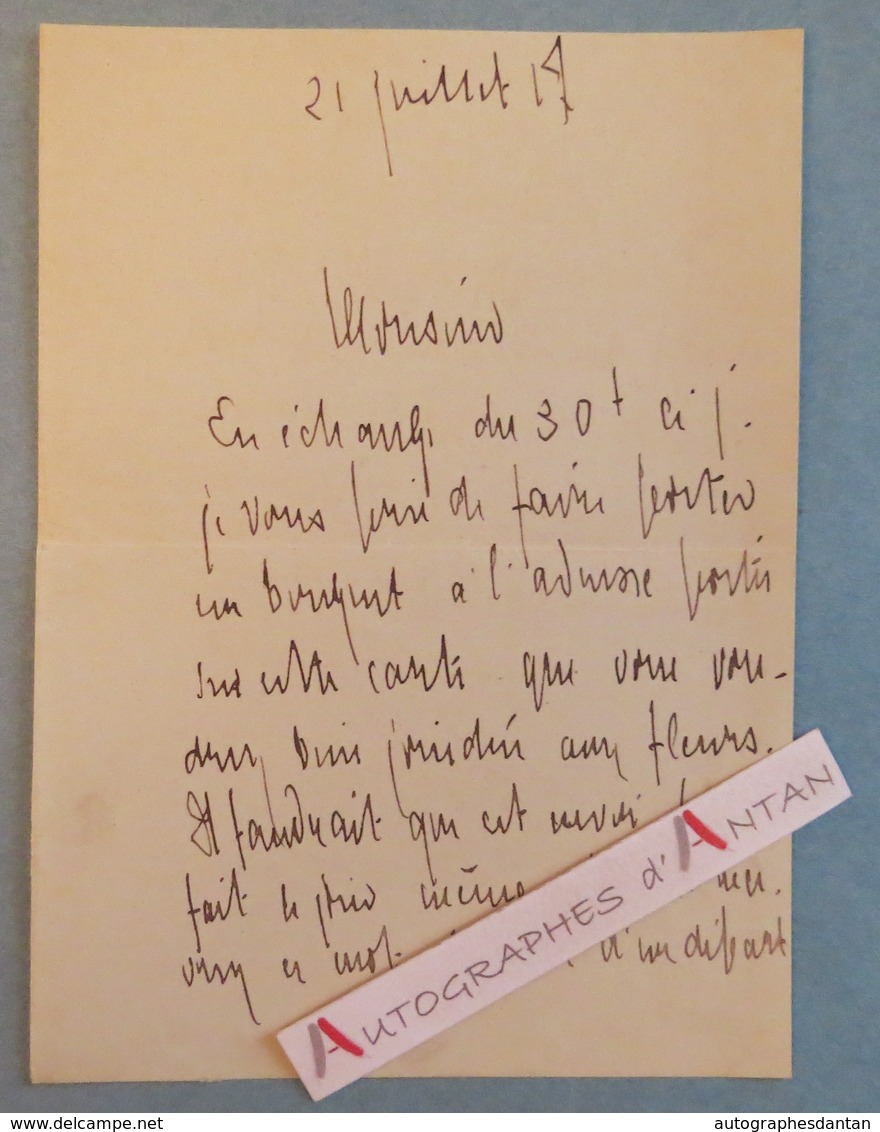 21 juillet 17
Monsieur
En échange du 30f ci j.
je vous prie de faire porter
un bouquet à l'adresse portée
sur cette carte que vous vou-
drez bien joindre aux fleurs.
Il faudrait que cet envoi
fait le jour même
vrez ce mot d'un départ
AUTOGRAPHES d'ANTAN
www.delcampe.net
autographesdantan